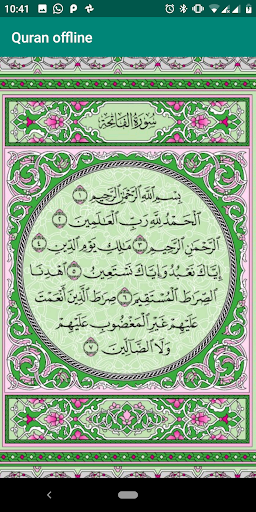 10:41
Quran offline
سُورَةُ الْفَاتِحَةِ
بِسْمِ اللَّهِ الرَّحْمَٰنِ الرَّحِيمِ ١
الْحَمْدُ لِلَّهِ رَبِّ الْعَٰلَمِينَ ٢
الرَّحْمَٰنِ الرَّحِيمِ ٣ مَٰلِكِ يَوْمِ الدِّينِ ٤
إِيَّاكَ نَعْبُدُ وَإِيَّاكَ نَسْتَعِينُ ٥ اهْدِنَا
الصِّرَٰطَ الْمُسْتَقِيمَ ٦ صِرَٰطَ الَّذِينَ أَنْعَمْتَ
عَلَيْهِمْ غَيْرِ الْمَغْضُوبِ عَلَيْهِمْ
وَلَا الضَّالِّينَ ٧